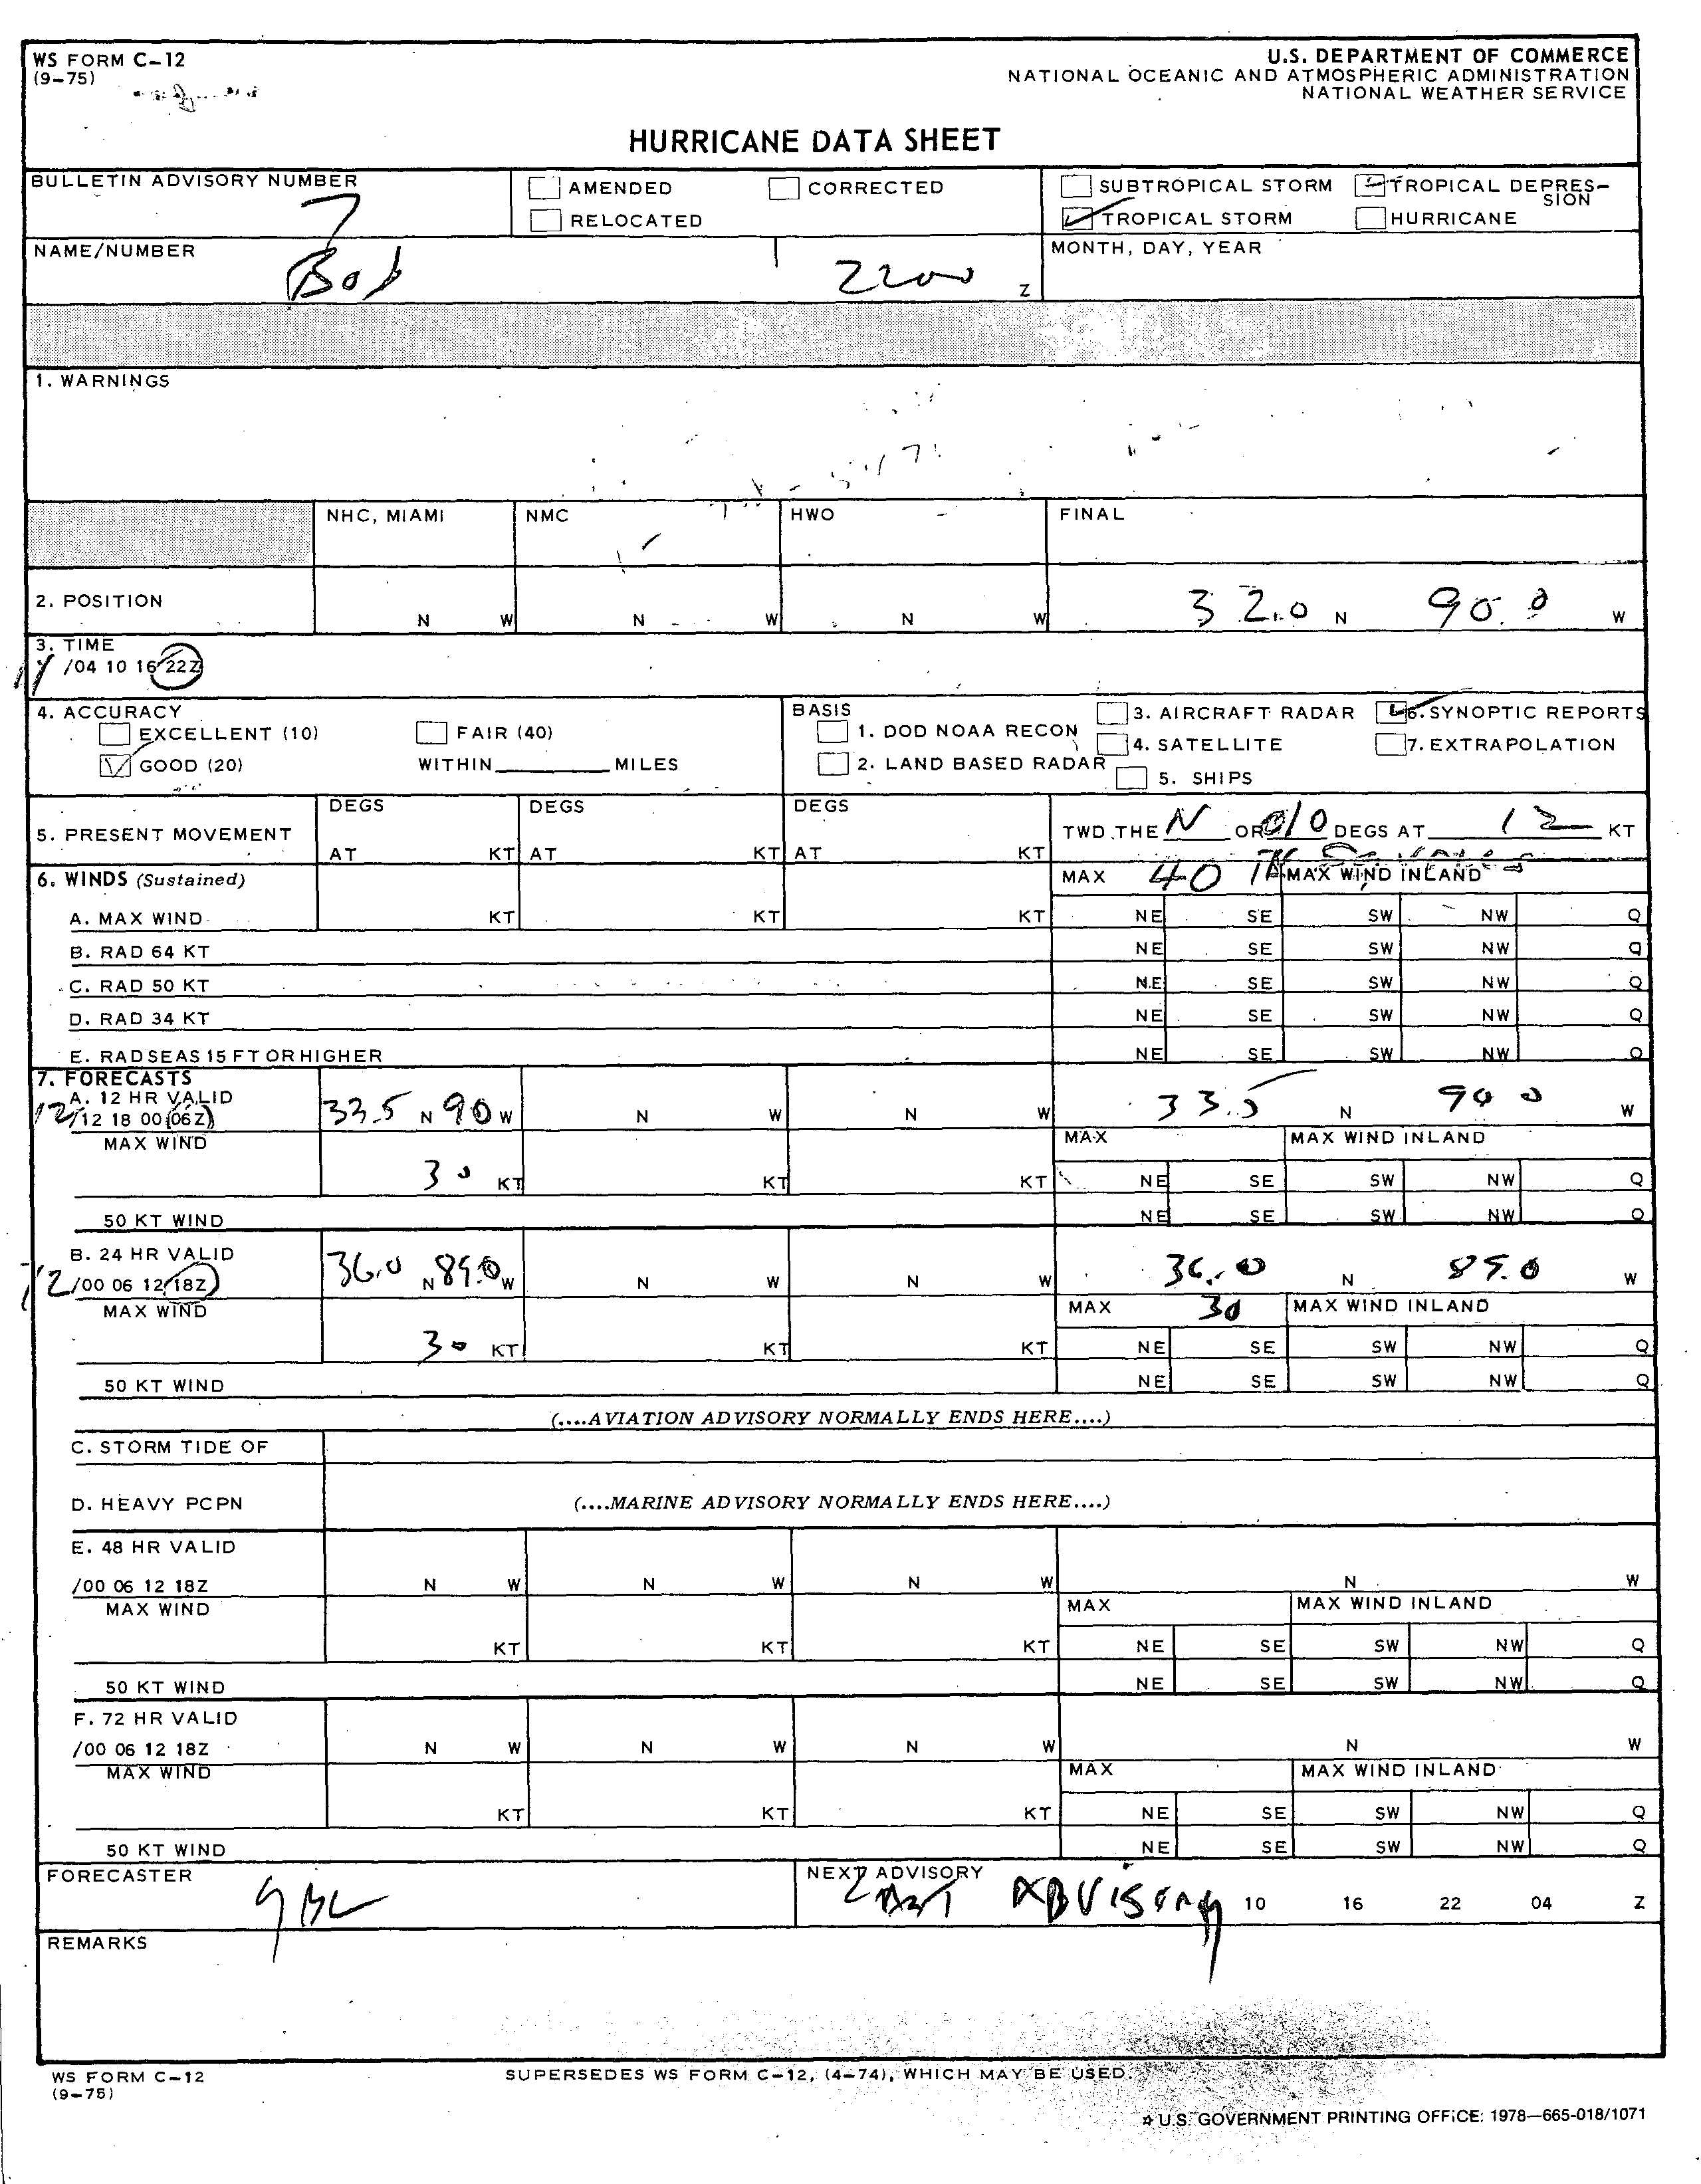 WS FORM C-12
(9-75)
U.S. DEPARTMENT OF COMMERCE
NATIONAL OCEANIC AND ATMOSPHERIC ADMINISTRATION
NATIONAL WEATHER SERVICE
HURRICANE DATA SHEET
BULLETIN ADVISORY NUMBER
7
AMENDED CORRECTED
RELOCATED
SUBTROPICAL STORM TROPICAL DEPRES-
SION
TROPICAL STORM HURRICANE
NAME/NUMBER
Bob
2200 Z
MONTH, DAY, YEAR
1. WARNINGS
NHC, MIAMI NMC HWO FINAL
2. POSITION
N W N W N W 32.0 N 90.0 W
3. TIME
11 /04 10 16 22Z
4. ACCURACY
EXCELLENT (10) FAIR (40)
GOOD (20) WITHIN MILES
BASIS
1. DOD NOAA RECON
2. LAND BASED RADAR
3. AIRCRAFT RADAR
4. SATELLITE
5. SHIPS
6. SYNOPTIC REPORTS
7. EXTRAPOLATION
5. PRESENT MOVEMENT
DEGS DEGS DEGS
AT KT AT KT AT KT
TWD THE N OR 010 DEGS AT 12 KT
6. WINDS (Sustained)
MAX 40 IN MAX WIND INLAND
A. MAX WIND KT KT KT NE SE SW NW Q
B. RAD 64 KT NE SE SW NW Q
C. RAD 50 KT NE SE SW NW Q
D. RAD 34 KT NE SE SW NW Q
E. RAD SEAS 15 FT OR HIGHER NE SE SW NW Q
7. FORECASTS
A. 12 HR VALID
12/12 18 00 06Z 33.5 N 90 W N W N W 33.5 N 90 0 W
MAX WIND MAX MAX WIND INLAND
30 KT KT KT NE SE SW NW Q
50 KT WIND NE SE SW NW Q
B. 24 HR VALID
12/00 06 12 18Z 36.0 N 89.0 W N W N W 36.0 N 89.0 W
MAX WIND MAX 30 MAX WIND INLAND
30 KT KT KT NE SE SW NW Q
50 KT WIND NE SE SW NW Q
(....AVIATION ADVISORY NORMALLY ENDS HERE....)
C. STORM TIDE OF
D. HEAVY PCPN (....MARINE ADVISORY NORMALLY ENDS HERE....)
E. 48 HR VALID
/00 06 12 18Z N W N W N W N W
MAX WIND MAX MAX WIND INLAND
KT KT KT NE SE SW NW Q
50 KT WIND NE SE SW NW Q
F. 72 HR VALID
/00 06 12 18Z N W N W N W N W
MAX WIND MAX MAX WIND INLAND
KT KT KT NE SE SW NW Q
50 KT WIND NE SE SW NW Q
FORECASTER
NEXT ADVISORY
LAST ADVISORY 10 16 22 04 Z
REMARKS
WS FORM C-12
(9-75)
SUPERSEDES WS FORM C-12, (4-74), WHICH MAY BE USED.
☆ U.S. GOVERNMENT PRINTING OFFICE: 1978—665-018/1071